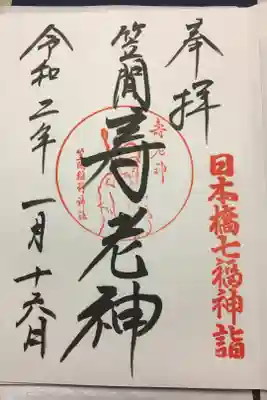 奉拝
日本橋七福神詣
笠間寿老神
寿老神
笠間稲荷神社
令和二年一月十六日